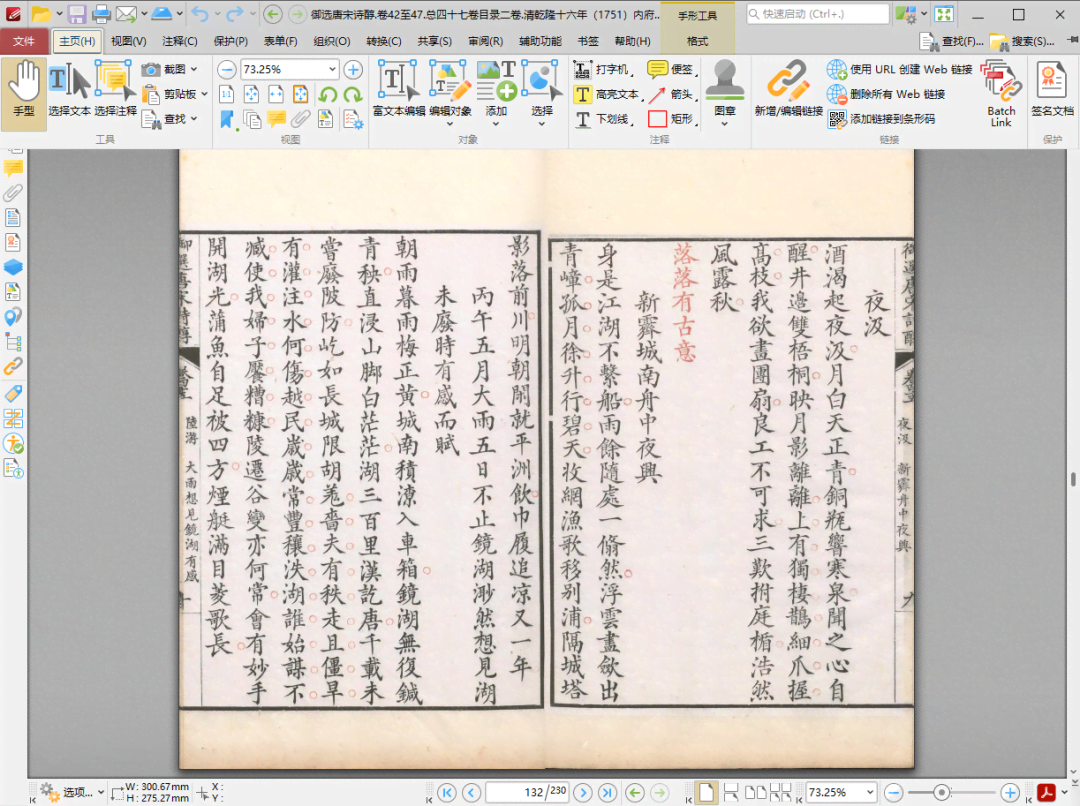 御选唐宋诗醇.卷42至47.总四十七卷目录二卷.清乾隆十六年（1751）内府..
手形工具
快速启动 (Ctrl+.)
文件 主页(H) 视图(V) 注释(C) 保护(P) 表单(F) 组织(O) 转换(C) 共享(S) 审阅(R) 辅助功能 书签 帮助(H) 格式 查找(F)... 搜索(S)...
手型 选择文本 选择注释 截图 剪贴板 查找
工具
73.25%
视图
富文本编辑 编辑对象 添加 选择
对象
打字机 高亮文本 下划线 便签 箭头 矩形 图章
注释
新增/编辑链接 使用 URL 创建 Web 链接 删除所有 Web 链接 添加链接到条形码 Batch Link
链接
签名文档
保护
夜汲 新霽舟中夜興 九
夜汲
酒渴起夜汲月白天正青銅瓶響寒泉聞之心自
醒井邊雙梧桐映月影離離上有獨棲鵲細爪握
高枝我欲畫團扇良工不可求三歎拊庭楯浩然
風露秋
落落有古意
新霽城南舟中夜興
身是江湖不繫船雨餘隨處一翛然浮雲盡斂出
青嶂孤月徐升行碧天收網漁歌移别浦隔城塔
影落前川明朝閒就平洲飲巾屨追涼又一年
丙午五月大雨五日不止鏡湖渺然想見湖
未廢時有感而賦
朝雨暮雨梅正黄城南積潦入車箱鏡湖無復鍼
青秧直浸山脚白茫茫湖三百里漢訖唐千載未
嘗廢陂防屹如長城限胡羗嗇夫有秩走且僵旱
有灌注水何傷越民歲歲常豐穰泆湖誰始謀不
臧使我婦子饜糟糠陵遷谷變亦何常會有妙手
開湖光蒲魚自足被四方煙艇滿目菱歌長
陸游 大雨想見鏡湖有感
选项... W: 300.67mm X:
H: 275.27mm Y:
132/230
73.25%